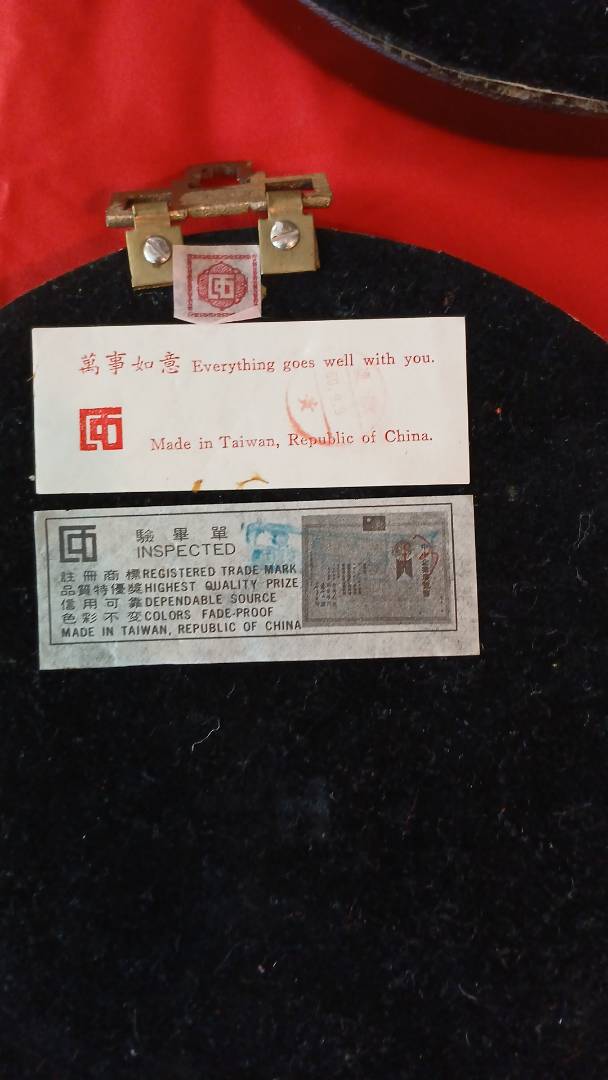 萬事如意 Everything goes well with you.
Made in Taiwan, Republic of China.
驗畢單
INSPECTED
註冊商標 REGISTERED TRADE MARK
品質特優獎 HIGHEST QUALITY PRIZE
信用可靠 DEPENDABLE SOURCE
色彩不變 COLORS FADE-PROOF
MADE IN TAIWAN, REPUBLIC OF CHINA